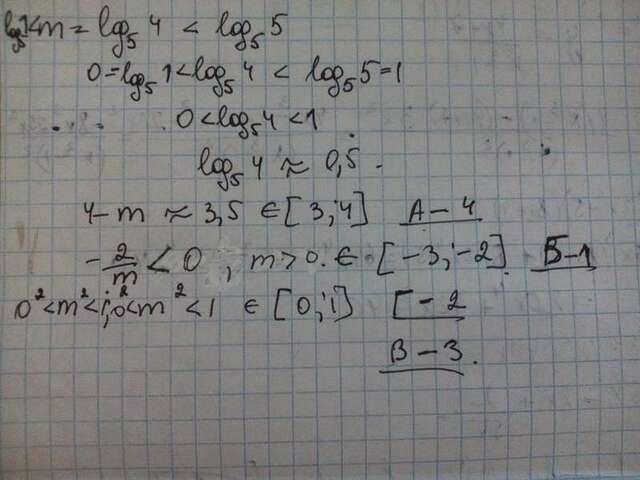 log₅1<m = log₅4 < log₅5
0=log₅1<log₅4 < log₅5=1
0<log₅4<1
log₅4 ≈ 0,5.
4-m ≈ 3,5 ∈ [3;4] А-4
-2/m < 0, m>0. ∈ [-3;-2] Б-1
0²<m²<1²; 0<m²<1 ∈ [0;1] Г-2
В-3.